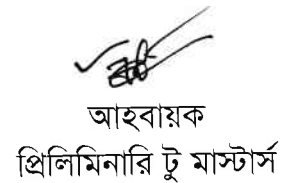 আহবায়ক
প্রিলিমিনারি টু মাস্টার্স